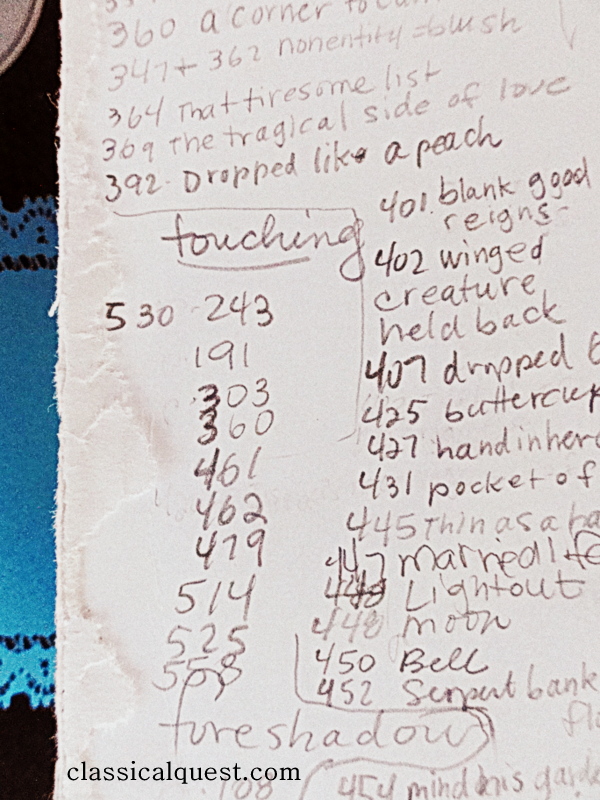 360 a corner to
347 + 362 nonentity = blush
364 That tiresome list
369 The tragical side of love
392. Dropped like a peach
touching
530 243
191
303
360
461
462
479
514
525
558
401. blank good
reigns
402 winged
creature
held back
407 dropped
425 buttercup
427 hand in her
431 pocket of
445 Thin as a
447 married life
448 Light out
448 moon
450 Bell
452 Serpent bank
foreshadow
108
454 mind
classicalquest.com